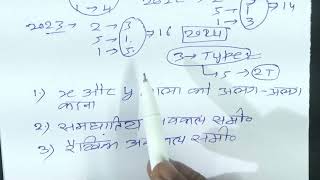 1 → 4
1 → 3
14
2023 → 2 → 3
5 → 1
1 → 5
16
2024
3 → Types
5 → 2T
1) x और y वाला को अलग-अलग करना
2) समघातीय अवकल समी०
3) रैखिक अवकल समी०